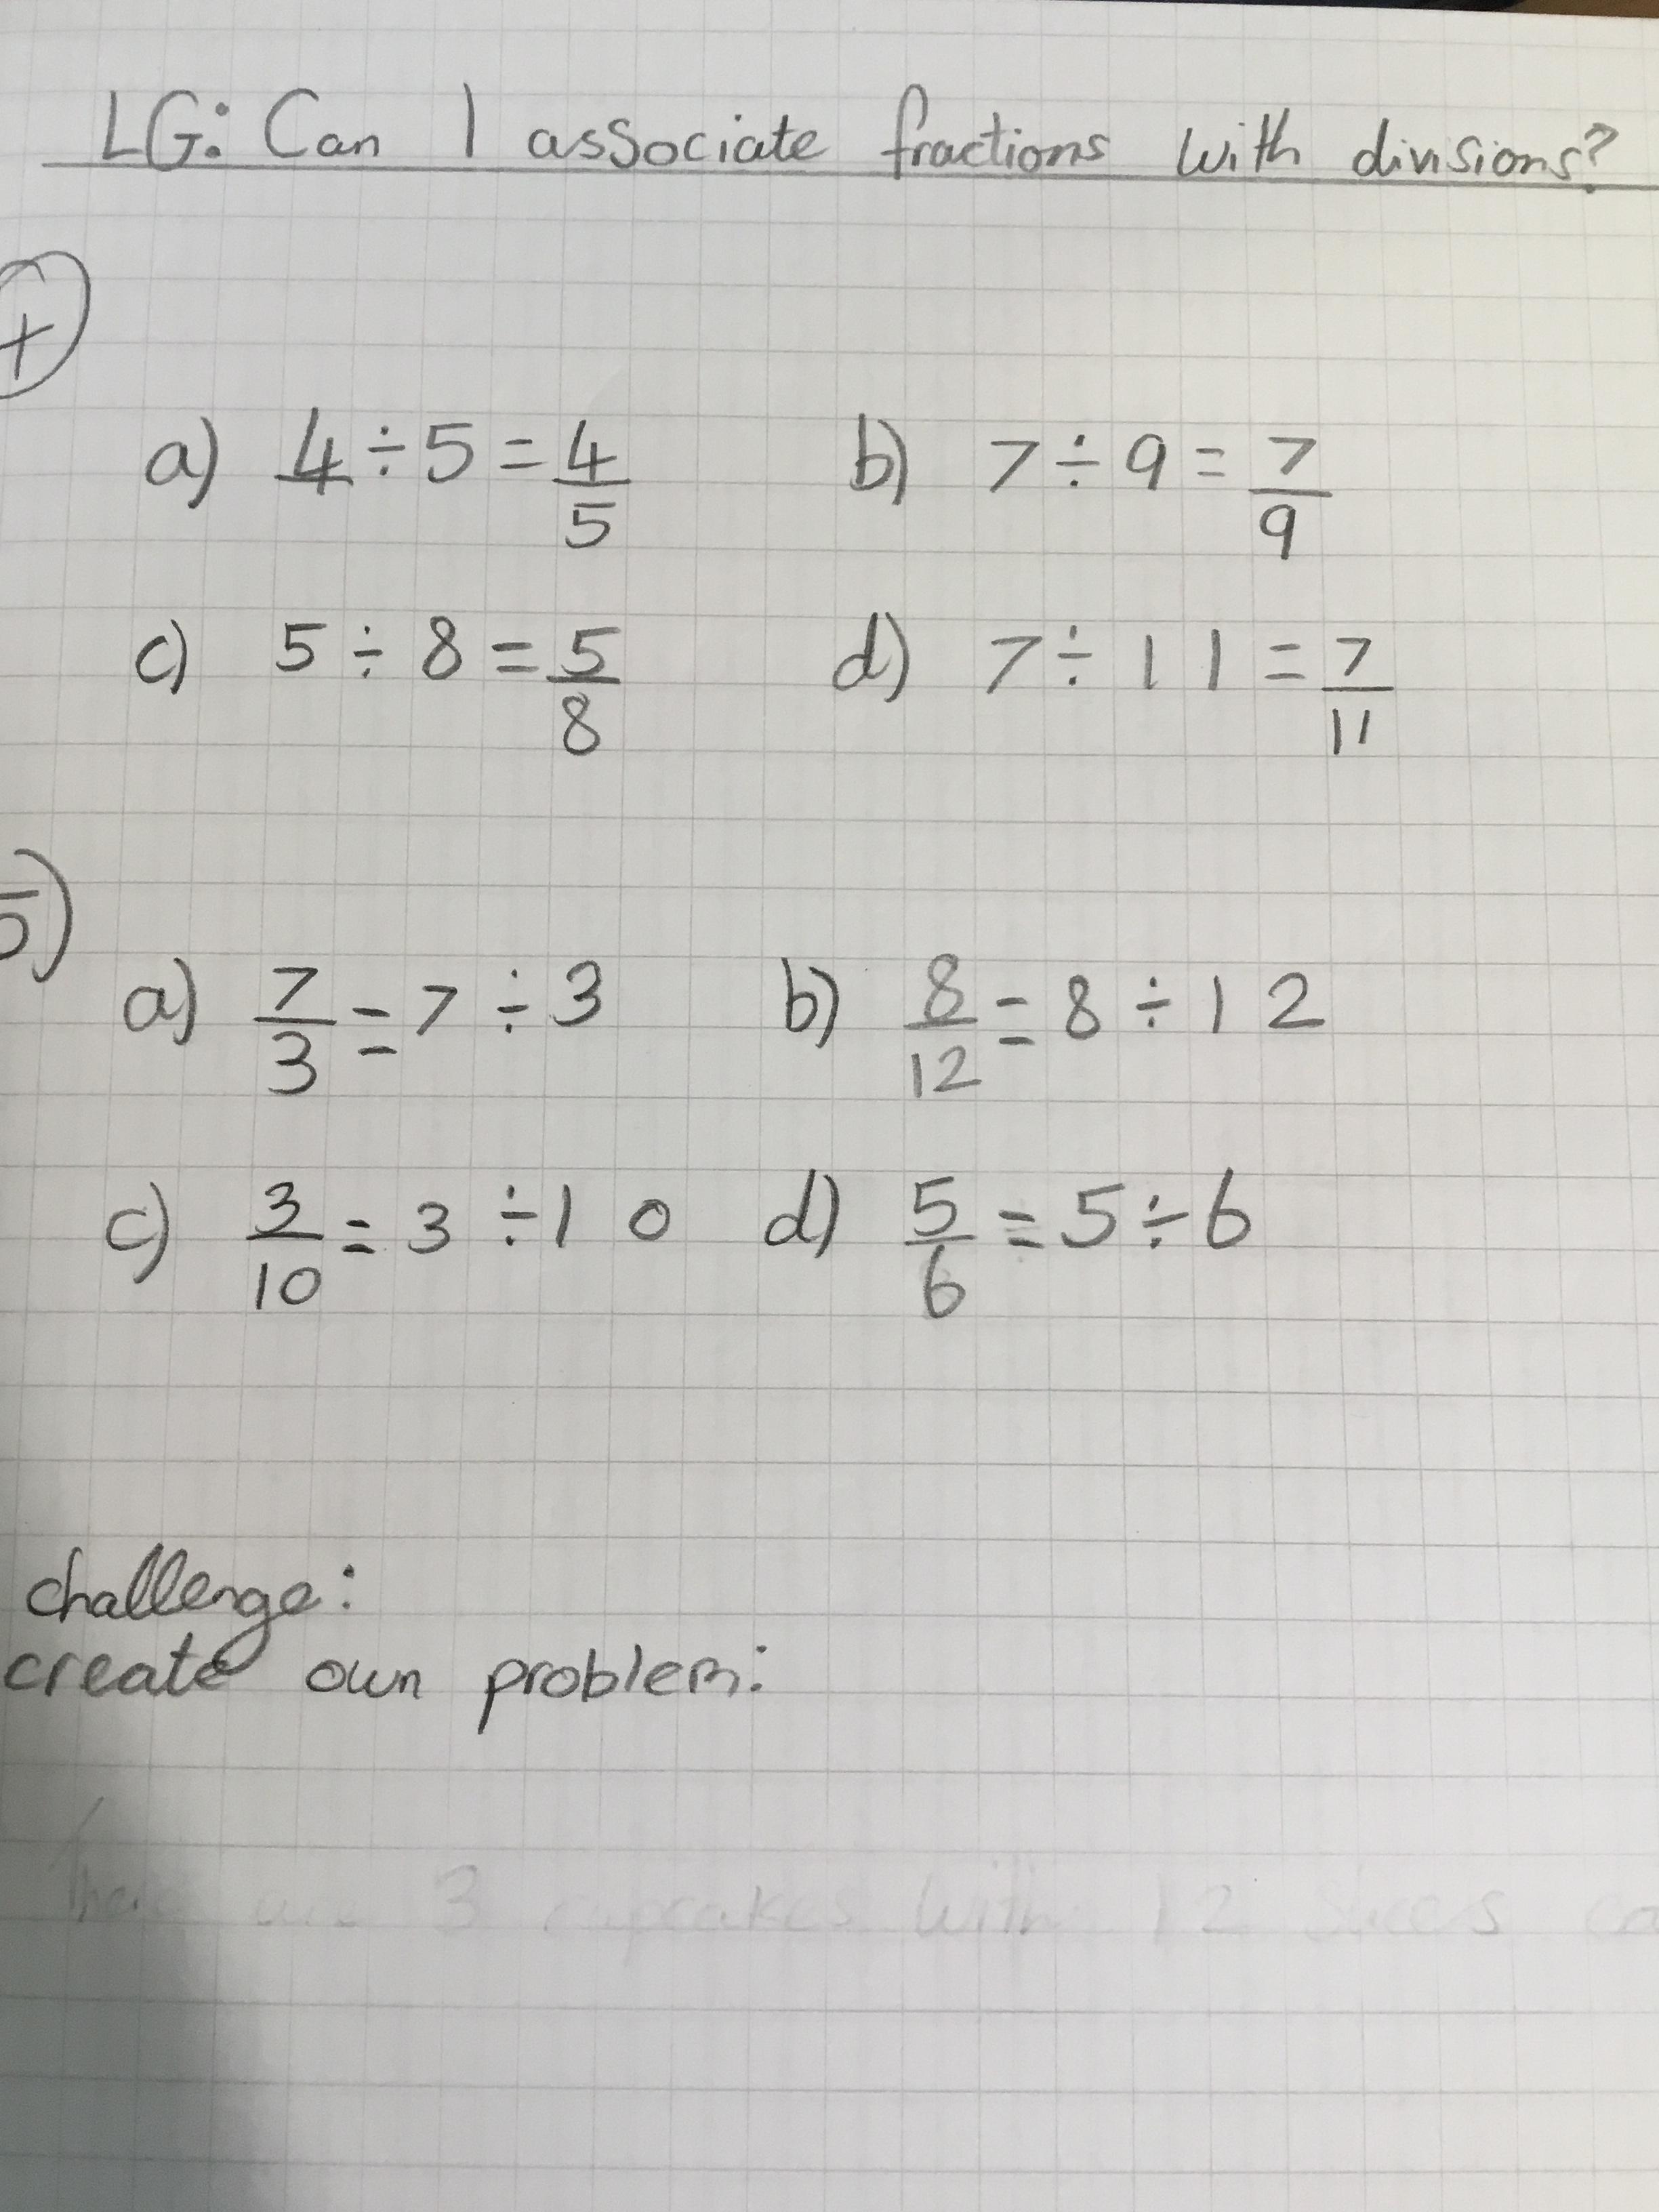 LG: Can I associate fractions with divisions?
a) 4 ÷ 5 = 4/5 b) 7 ÷ 9 = 7/9
c) 5 ÷ 8 = 5/8 d) 7 ÷ 11 = 7/11
a) 7/3 = 7 ÷ 3 b) 8/12 = 8 ÷ 12
c) 3/10 = 3 ÷ 10 d) 5/6 = 5 ÷ 6
challenge:
create own problem:
There are 3 cupcakes with 12 slices